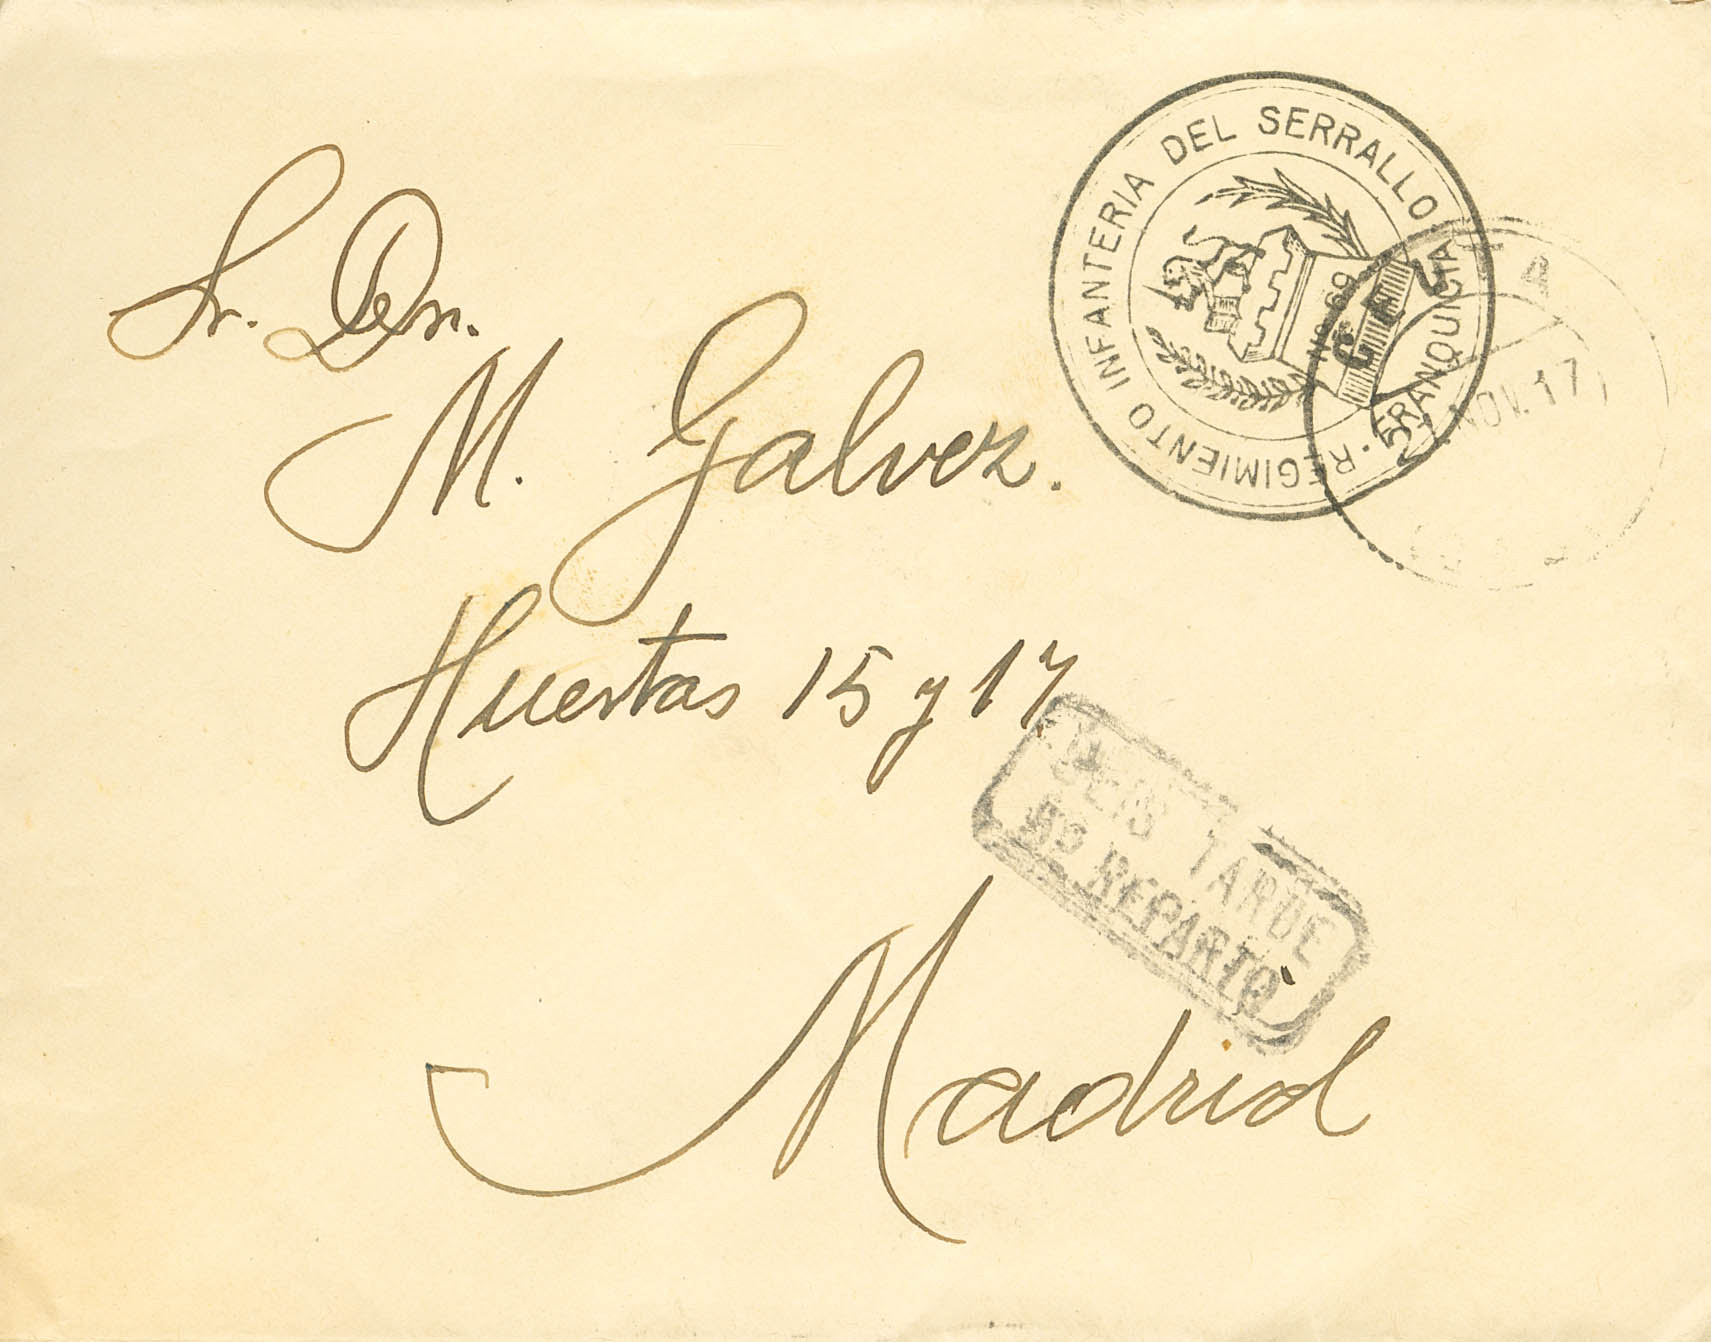 REGIMIENTO INFANTERIA DEL SERRALLO
Nº 69
FRANQUICIA
CEUTA
NOV. 17
Sr. Dn.
M. Galvez.
Huertas 15 y 17
SEIS TARDE
5º REPARTO
Madrid